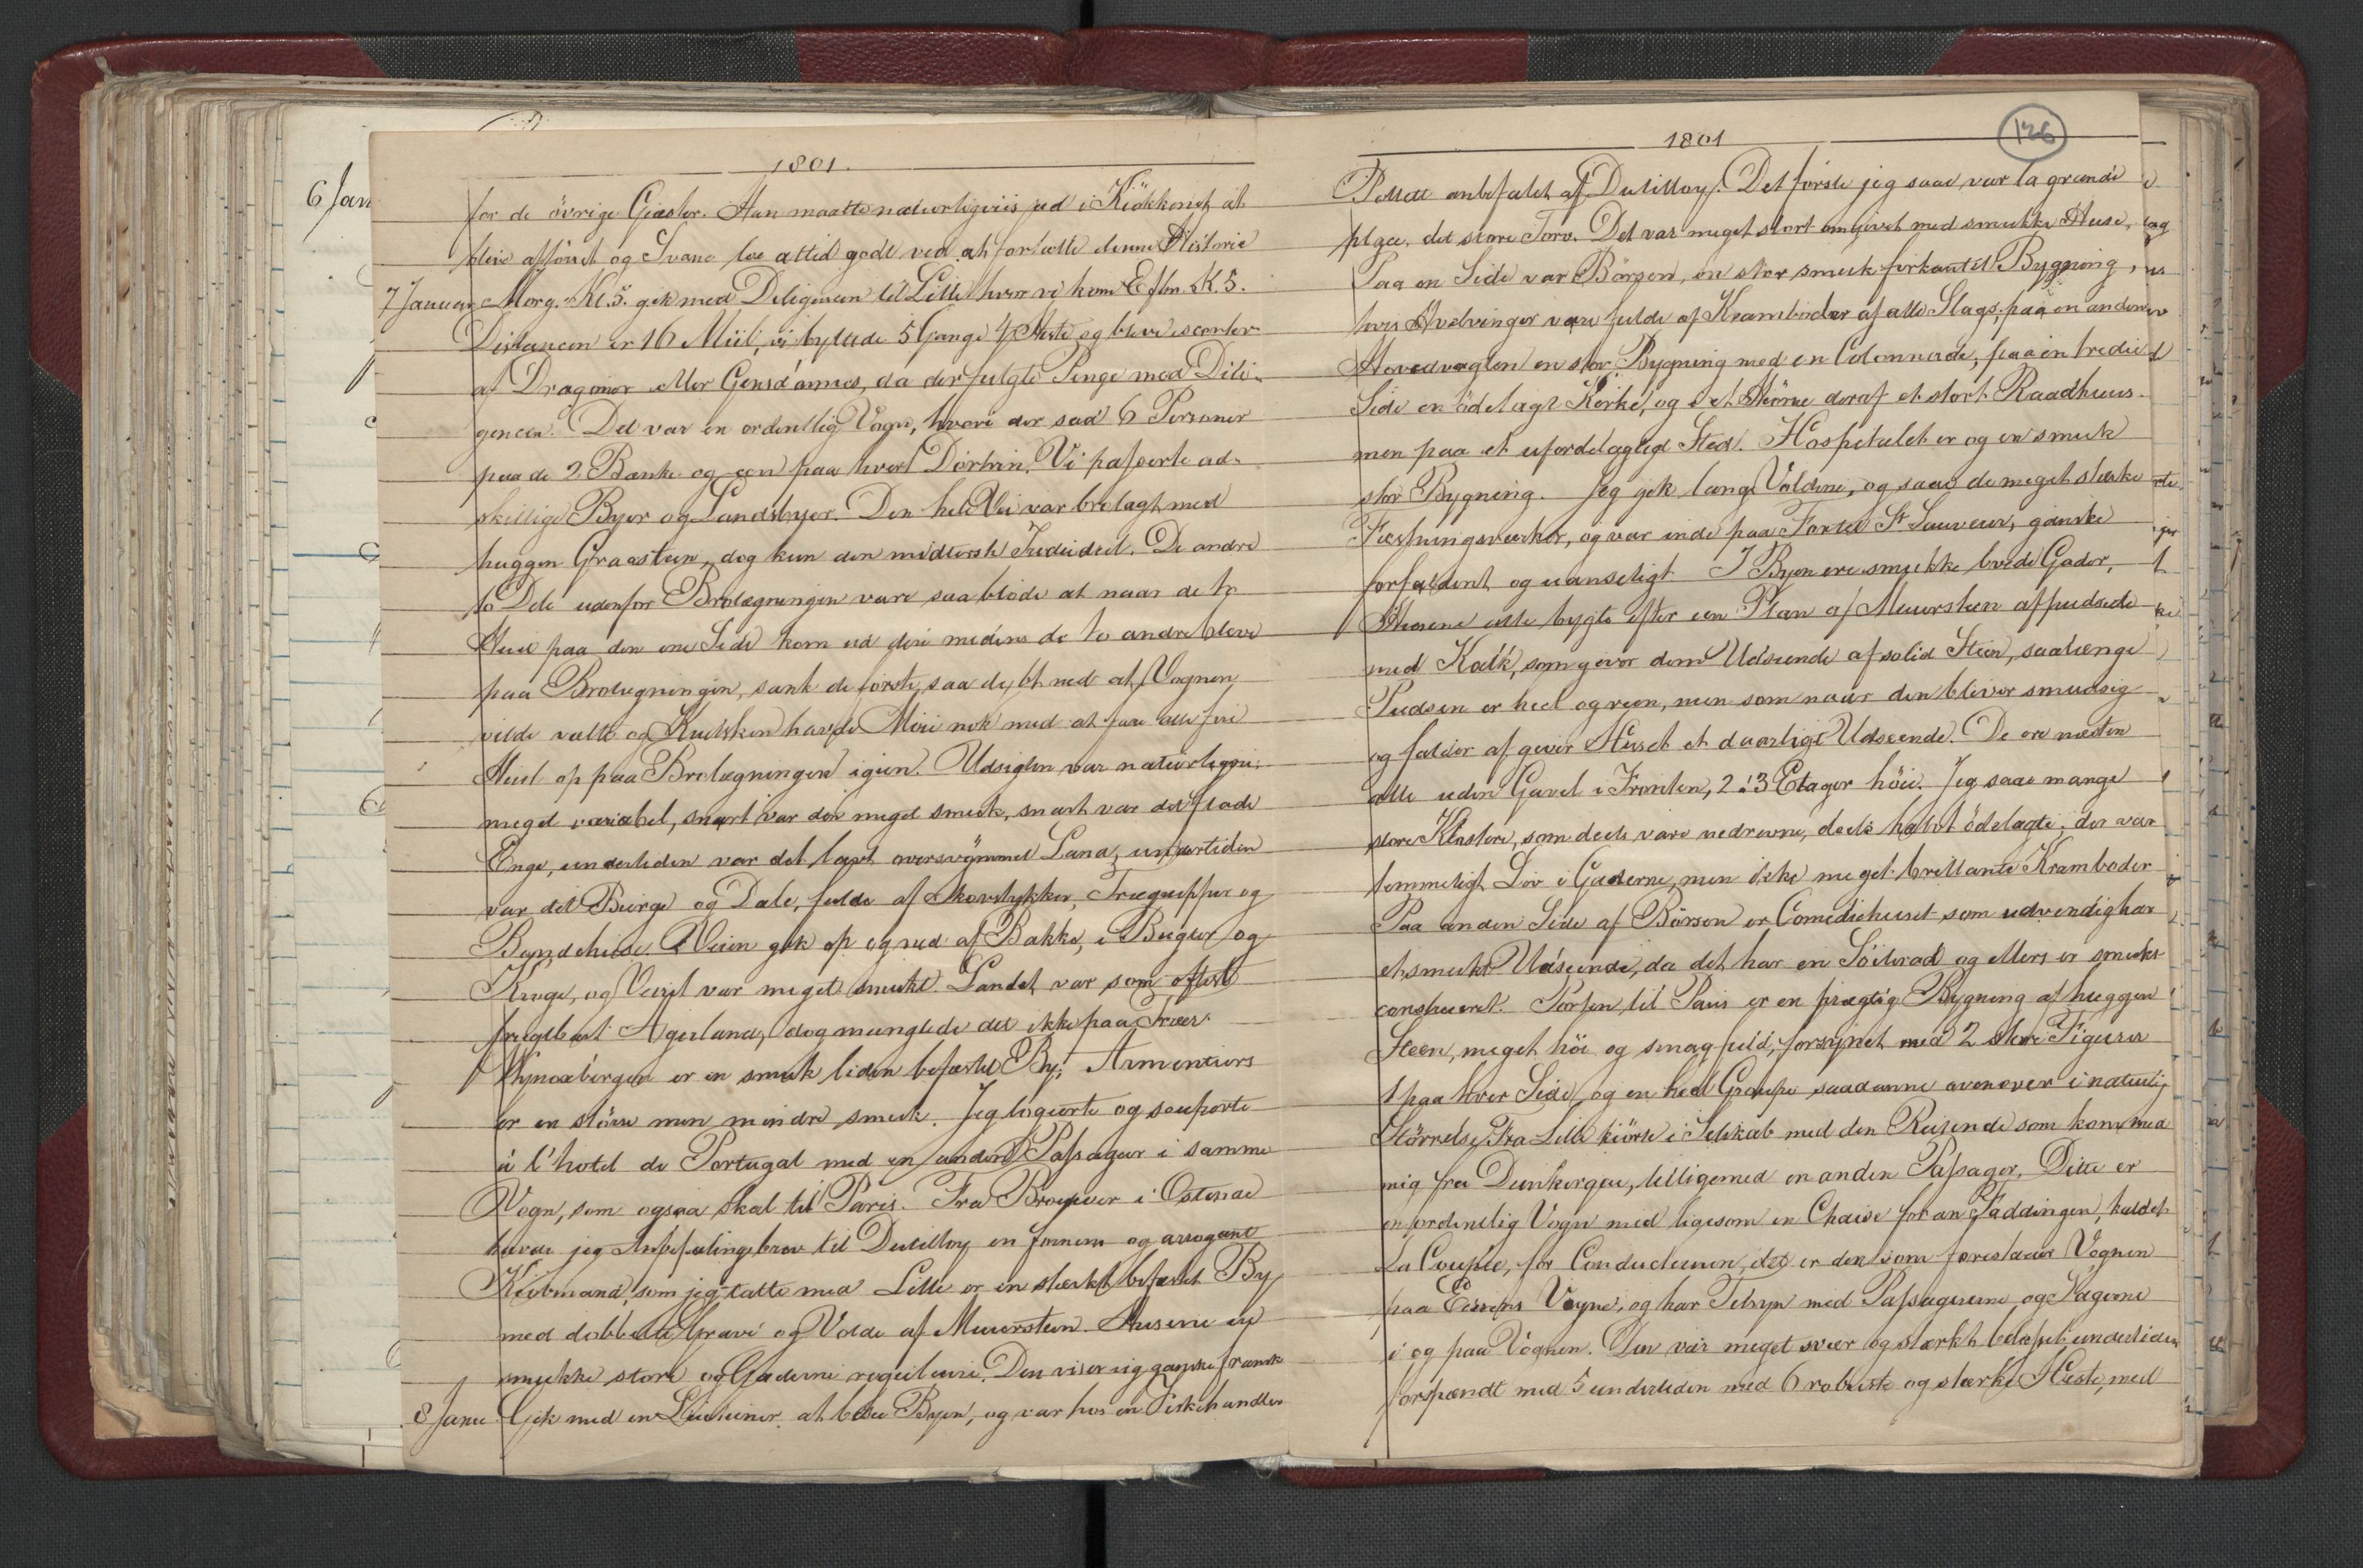 6 Jan
1801.
for de övrige Giæster. Han maatte naturligviis ud i Kiökkenet at
blive afförret og Svane loe altid godt ved at fortælle denne Historie
7 Januar Morg. Kl. 5. gik med Deligencen til Lille hvor vi kom Eftm. K. 5.
Distancen er 16 Miil, vi byttede 5 Gange 4 Heste og bleve escorter
af Dragoner eller Gensd'armes, da der fulgte Penge med Dili-
gencen. Det var en ordentlig Vogn, hvori der sad 6 Personer
paa de 2 Bænke og een paa hvert Dörtrin. Vi passerte ad-
skillige Byer og Landsbyer. Den hele Vei var brolagt med
huggen Graasteen, dog kun den midterste Trediedeel. De andre
to Dele udenfor Brolægningen vare saa blöde at naar de to
Hiul paa den ene Side kom ud deri medens de to andre bleve
paa Brolægningen, sank de förste saa dybt ned at Vognen
vilde vælte og Kudsken havde Möie nok med at faae alle fire
Hiul op paa Brolægningen igien. Udsigten var naturligvi
meget variabel, snart var den meget smuk, snart var det flade
Enge, undertiden var det lavt oversvömmet Land, undertiden
var det Bierge og Dale, fulde af Skovstykker, Trægrupper og
Bøndehuse. Veien gik op og ned af Bakke, i Bugter og
Kroge, og Veiret var meget smukt. Landet var som oftest
frugtbart Agerland, dog manglede det ikke paa Træer.
Wynoxbergen er en smuk liden befæstet By; Armentiers
er en större men mindre smuk. Jeg logerte og souperte
à l'hotel de Portugal med en anden Passageer i samme
Vogn, som ogsaa skal til Paris. Fra Brouwer i Ostende
havde jeg Anbefalingsbrev til Dutilloy en fornem og arrogant
Kiöbmand, som jeg talte med Lille er en stærkt befæstet By
med dobbelte Grave og Volde af Muursteen. Husene ere
smukke store og Gaderne regulaire. Den viser sig ganske fransk
8 Janu Gik med en Leietiener at besee Byen, og var hos en Fiskehandler
1801
126
anbefalet af Dutilloy. Det förste jeg saae var la grande
place, det store Torv. Det var meget stort omgivet med smukke Huse,
Paa en Side var Börsen, en stor smuk firkantet Bygning,
hvis Hvelvinger vare fulde af Kramboder af alle Slags, paa en anden
Hovedvagten en stor Bygning med en Colonnade, paa en tredie
Side en ödelagt Kirke, og i et Hiörne deraf et stort Raadhuus.
men paa et ufordelagtigt Sted. Hospitalet er og en smuk
stor Bygning. Jeg gik langs Voldene, og saae de meget stærke
Fæstningsværker, og var inde paa Fortet St Sauveur, ganske
forfaldent og uanseligt. I Byen ere smukke brede Gader,
Husene alle bygte efter een Plan af Muursteen afpudsede
med Kalk, som giver dem Udseende af solid Steen, saalænge
Pudsen er heel og reen, men som naar den bliver smudsig
og falder af giver Huset et daarligt Udseende. De ere næsten
alle uden Gavel i Fronten, 2 à 3 Etager höie. Jeg saae mange
store Klostere, som deels vare nedrevne, deels halvt ödelagte, der var
temmeligt Liv i Gaderne, men ikke meget brillante Kramboder
Paa anden Side af Börsen er Comediehuset som udvendig har
et smukt Udseende, da det har en Söilerad og ellers er smukt
construeret. Porten til Paris er en prægtig Bygning af huggen
Steen, meget höi og smagfuld, forsynet med 2 store Figurer
1 paa hver Side, og en heel Groupe saadanne ovenover i naturlig
Störrelse. Fra Lille kiörte i Selskab med den Reisende som kom med
mig fra Dunkerque, tilligemed en anden Passager. Dette er
en ordentlig Vogn med ligesom en Chaise foran Faddingen, kaldet
La Coupée, for Conducteuren, det er den som forestaaer Vognen
paa Eierens Vegne, og har Tilsyn med Passagererne, og Sagerne
i og paa Vognen. Den var meget svær og stærkt belæsset undertiden
forspændt med 5 undertiden med 6 robuste og stærke Heste, med